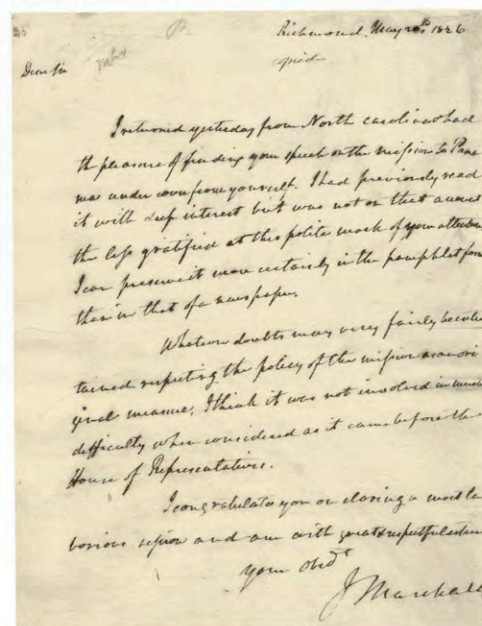 Richmond May 20th 1826
copied
Dear Sir
I returned yesterday from North carolina & had
the pleasure of finding your speech on the mission to Pana
ma under cover from yourself. I had previously read
it with deep interest but was not on that account
the less gratified at this polite mark of your attention
I can preserve it more certainly in the pamphlet form
than in that of a newspaper
Whatever doubts may very fairly be enter
tained respecting the policy of the mission as an ori
ginal measure, I think it was not involved in much
difficulty when considered as it came before the
House of Representatives.
I congratulate you on closing a most la
borious session and am with great & respectful esteem
your Obdt
J Marshall